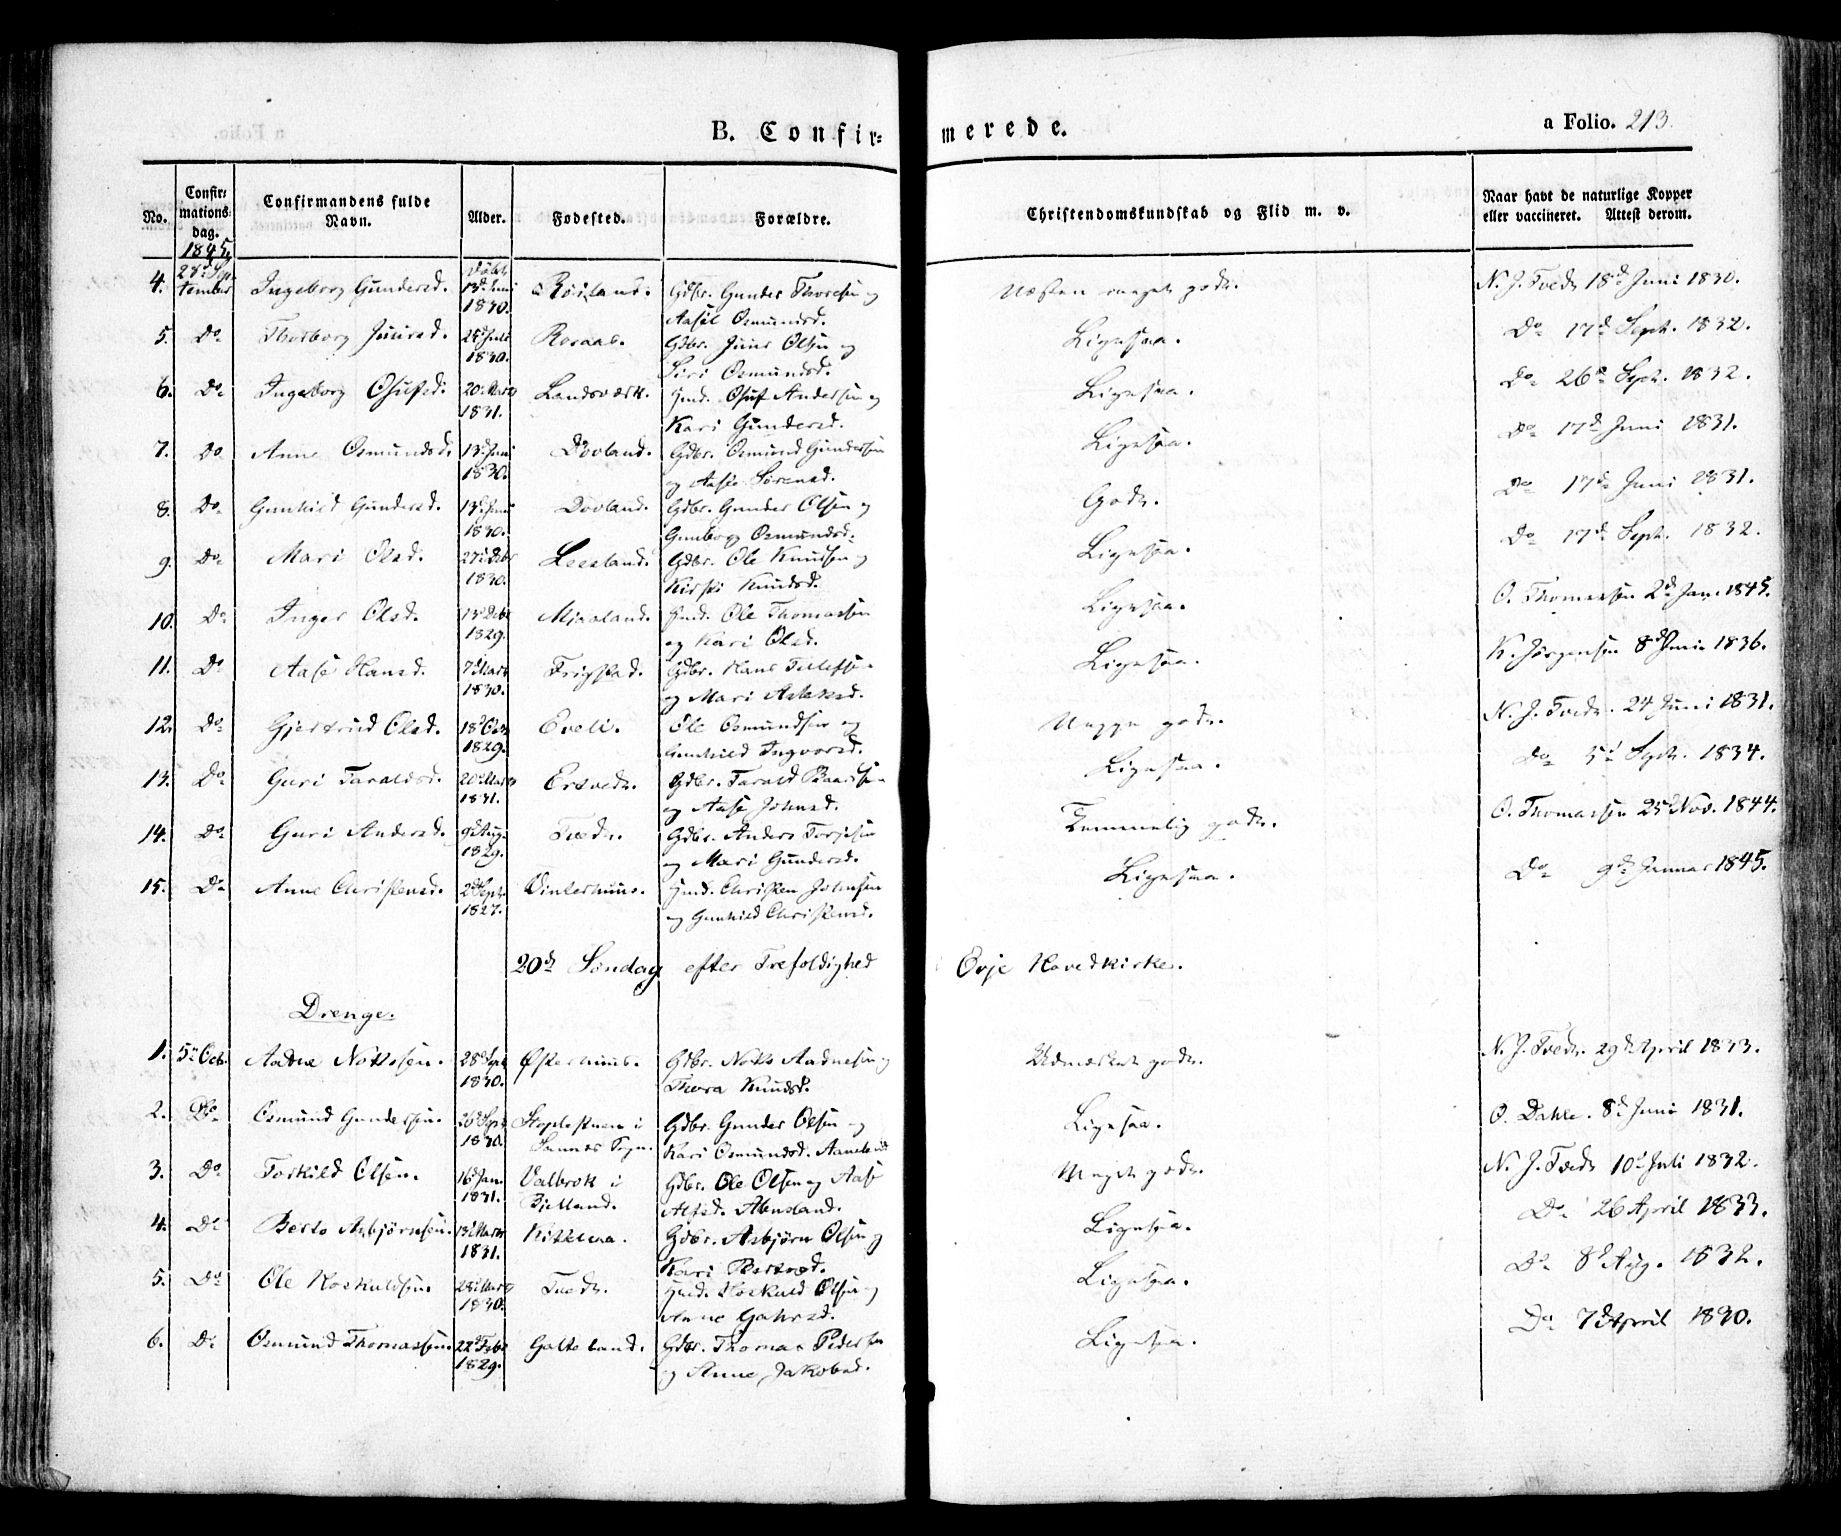 B. Confir=
merede.
a Folio. 213.
No.
Confir=
mations=
dag.
Confirmandens fulde
Navn.
Alder.
Fødested.
Forældre.
Christendomskundskab og Flid m. v.
Naar havt de naturlige Kopper
eller vaccineret. Attest derom.
1845
4. 28d Sep-
tember Ingeborg Gundersd. Døbt
13d Juni
1830. Gdbr. Gunder Thoresen og
Aasil Osmundsd. Næsten meget godt. N. J. Tvedt 18d Juni 1830.
5. Do Thorborg Juursd. 25d Juli
1830. Rosaas. Gdbr. Juur Olsen og
Siri Osmundsd. Ligesaa. Do 17d Sept. 1832.
6. Do Ingeborg Osufsd. 20d Marts
1831. Landsværk. Hmd. Osuf Andersen og
Kari Gundersd. Ligesaa. Do 26d Sept. 1832.
7. Do Anne Osmundsd. 13d Juni
1830. Dovland. Gdbr. Osmund Gundersen
og Aase Sørensd. Ligesaa. Do 17d Juni 1831.
8. Do Gunhild Gundersd. 13d Juni
1830. Dovland. Gdbr. Gunder Olsen og
Gunborg Osmundsd. Godt. Do 17d Juni 1831.
9. Do Mari Olsd. 27d
1830. Gdbr. Ole Knudsen og
Kirsti Knudsd. Ligesaa. Do 17d Sept. 1832.
10. Do Inger Olsd. 13d
1829. Mjaaland. Hmd. Ole Thomassen
og Kari Olsd. Ligesaa. O. Thomassen 2d Jan. 1845.
11. Do Aase Hansd. 7d Marts
1830. Frigstad. Gdbr. Hans Tellefsen
og Mari Aslaksd. Ligesaa. K. Jørgensen 8d Juni 1836.
12. Do Gjertrud Olsd. 18d Octr
1829. Eveli. Ole Osmundsen og
Gunhild Ingvorsd. Neppe godt. N. J. Tvedt. 24 Juni 1831.
13. Do Guri Taraldsd. 20d Marts
1831. Ertvedt. Gdbr. Tarald Baardsen
og Aase Johnsd. Ligesaa. Do 5d Sept. 1834.
14. Do Guri Andersd. 9d Aug.
1829. Tvedt. Gdbr. Anders Torjesen
og Mari Gundersd. Temmelig godt. O. Thomassen 25d Nov. 1844.
15. Do Anne Christensd. 2d Sept.
1827. Vinterhuus. Hmd. Christen Johnsen
og Gunhild Christensd. Ligesaa. Do 9d Januar 1845.
20d Søndag efter Trefoldighed i Evje Hovedkirke.
Drenge.
1. 5d Octr. Aadne Nottosen. 28d Sept
1830. Østerhuus. Gdbr. Notto Aadnesen og
Thora Knudsd. Udmærket godt. N. J. Tvedt. 29d April 1833.
2. Do Osmund Gundersen. 26d Sept
1830. i
Sogn. Gdbr. Gunder Olsen og
Kari Osmundsd. Ligesaa. O. Dahle. 8d Juni 1831.
3. Do Torkild Olsen. 16d Jan.
1831. Valbrok i
Bjelland. Gdbr. Ole Olsen og Aase
Alfsd. Abusland. Meget godt. N. J. Tvedt 10d Juli 1832.
4. Do Berto Asbjørnsen. 13d Marts
1831. Gdbr. Asbjørn Olsen og
Kari Ligesaa. Do 26 April 1833.
5. Do Ole Hoskuldsen. 28d Marts
1830. Tvedt. Hmd. Hoskuld Olsen og
Anne Ligesaa. Do 8d Aug. 1832.
6. Do Osmund Thomassen. 22d Febr
1829. Galteland. Gdbr. Thomas Pedersen
og Anne Jakobsd. Ligesaa. Do 7d April 1830.